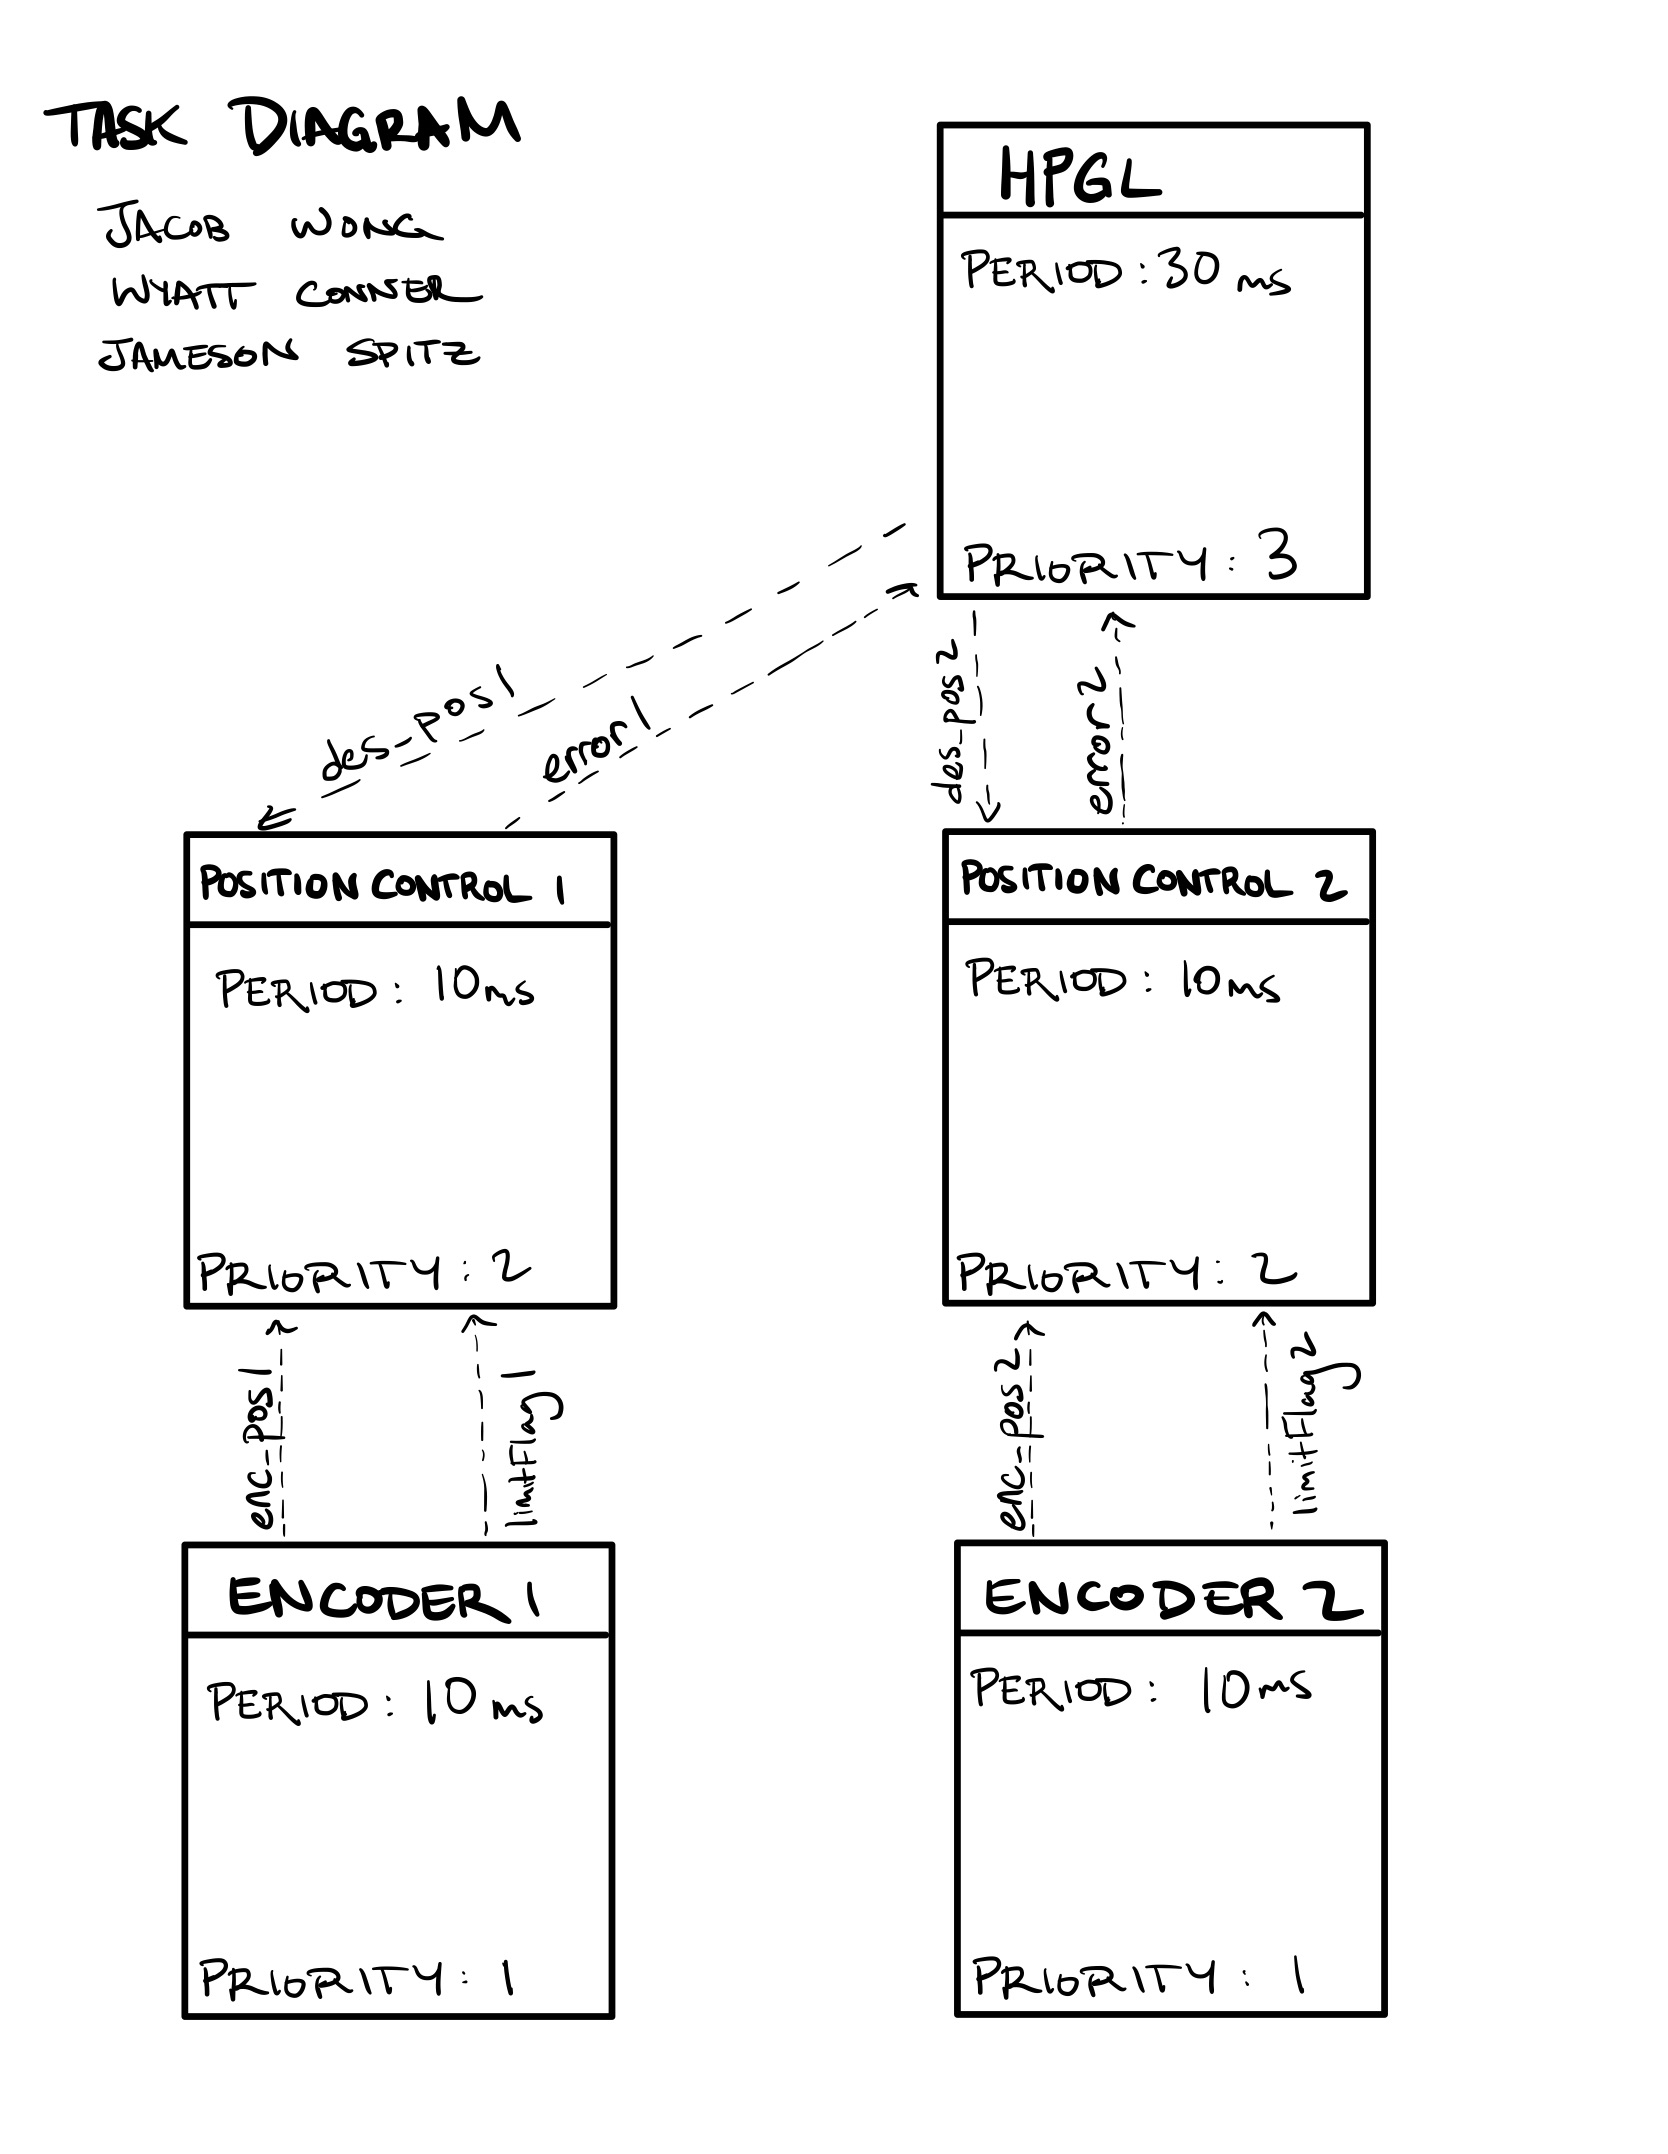 TASK DIAGRAM
JACOB WONG
WYATT CONNER
JAMESON SPITZ
HPGL
PERIOD: 30 ms
PRIORITY: 3
des_pos1
error1
des_pos2
error2
POSITION CONTROL 1
PERIOD: 10ms
PRIORITY: 2
POSITION CONTROL 2
PERIOD: 10ms
PRIORITY: 2
enc_pos1
limitFlag1
enc_pos2
limitFlag2
ENCODER 1
PERIOD: 10 ms
PRIORITY: 1
ENCODER 2
PERIOD: 10ms
PRIORITY: 1